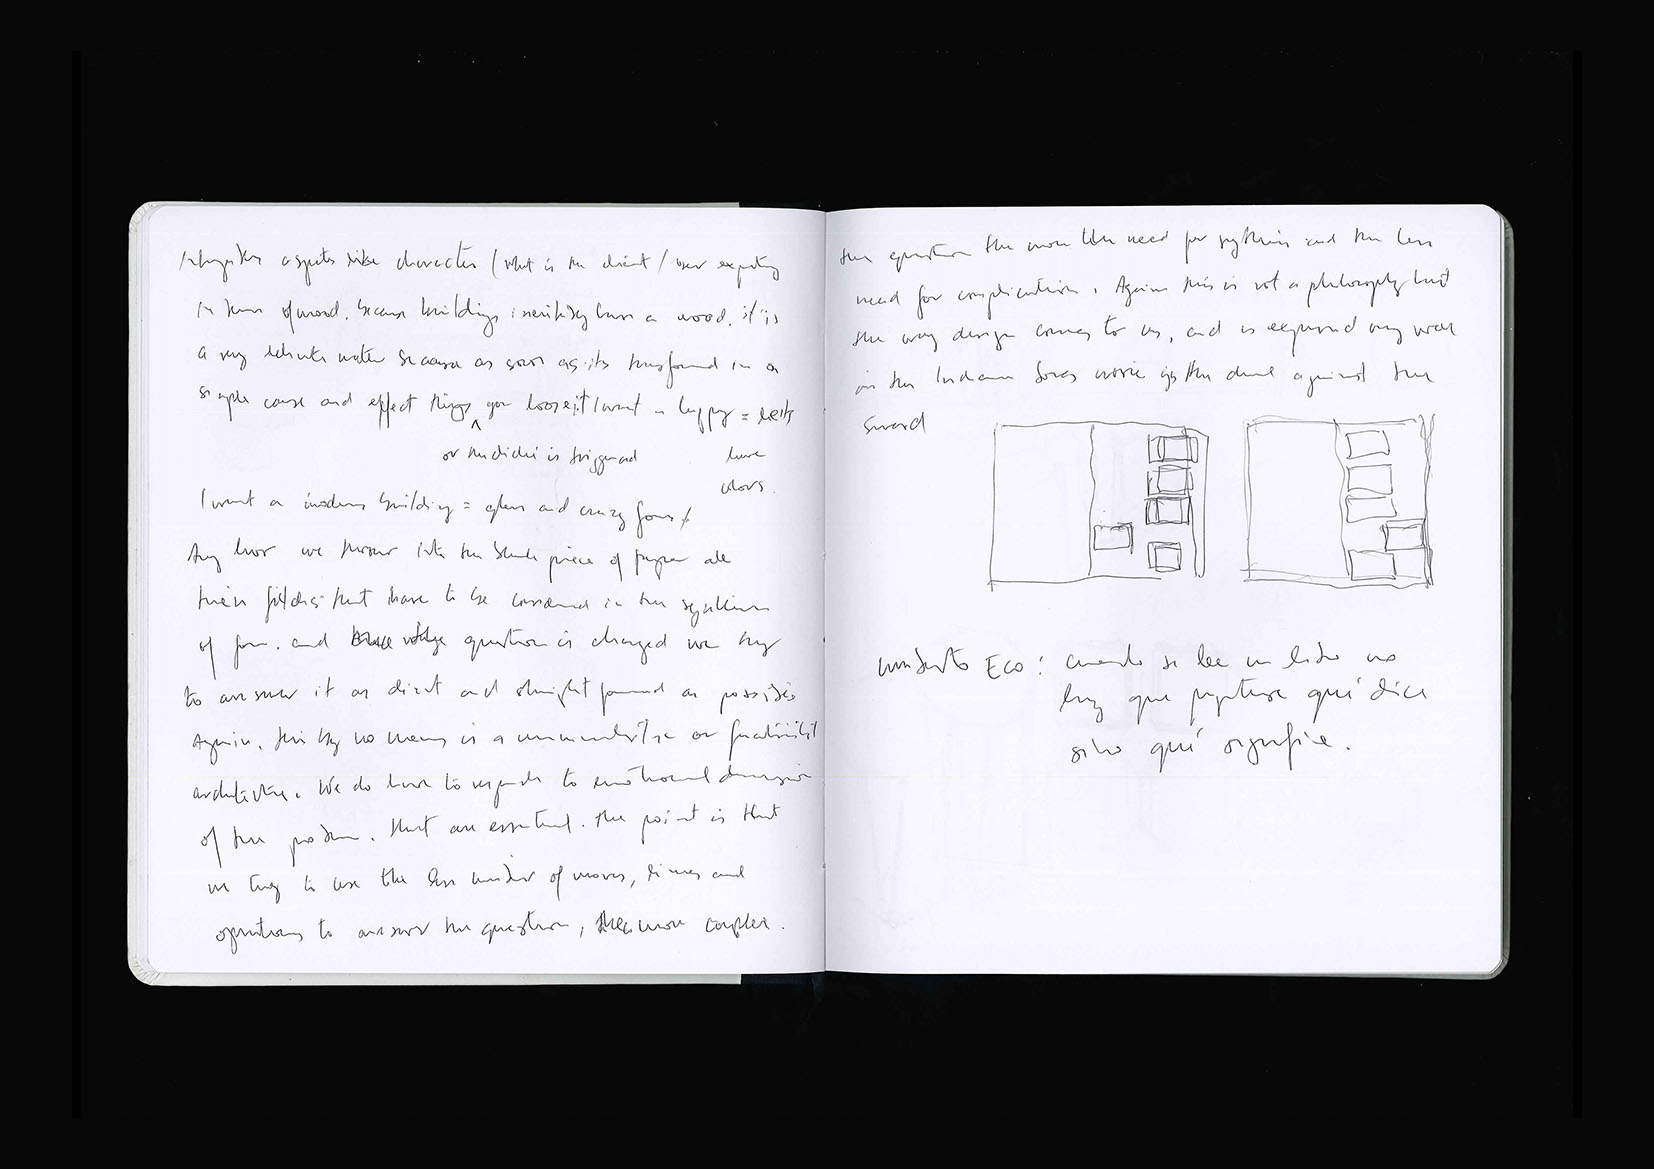 aspects like character (what is the client / user expecting
in terms of mood, because buildings inevitably have a mood, it is
a very delicate matter because as soon as its transformed in a
simple cause and effect things you loose it I want a happy = lets
or the cliché is triggered
have
colors.
I want a modern building = glass and crazy forms
Any how we throw into the blank piece of paper all
their that have to be considered in the
of form. and question is changed we try
to answer it as direct and straight forward as possible
Again, this by no means is a or
architecture. We do have to respond to emotional dimension
of the problem. that are essential. the point is that
we try to use the less number of moves, lines and
operations to answer the question, the more complex.
the question the more the need for synthesis and the less
need for complication. Again this is not a philosophy but
the way design comes to us, and is very well
in the Indiana Jones movie the duel against the
sword
Umberto Eco: cuando se lee un libro no
hay que preguntarse qué dice
sino qué significa.